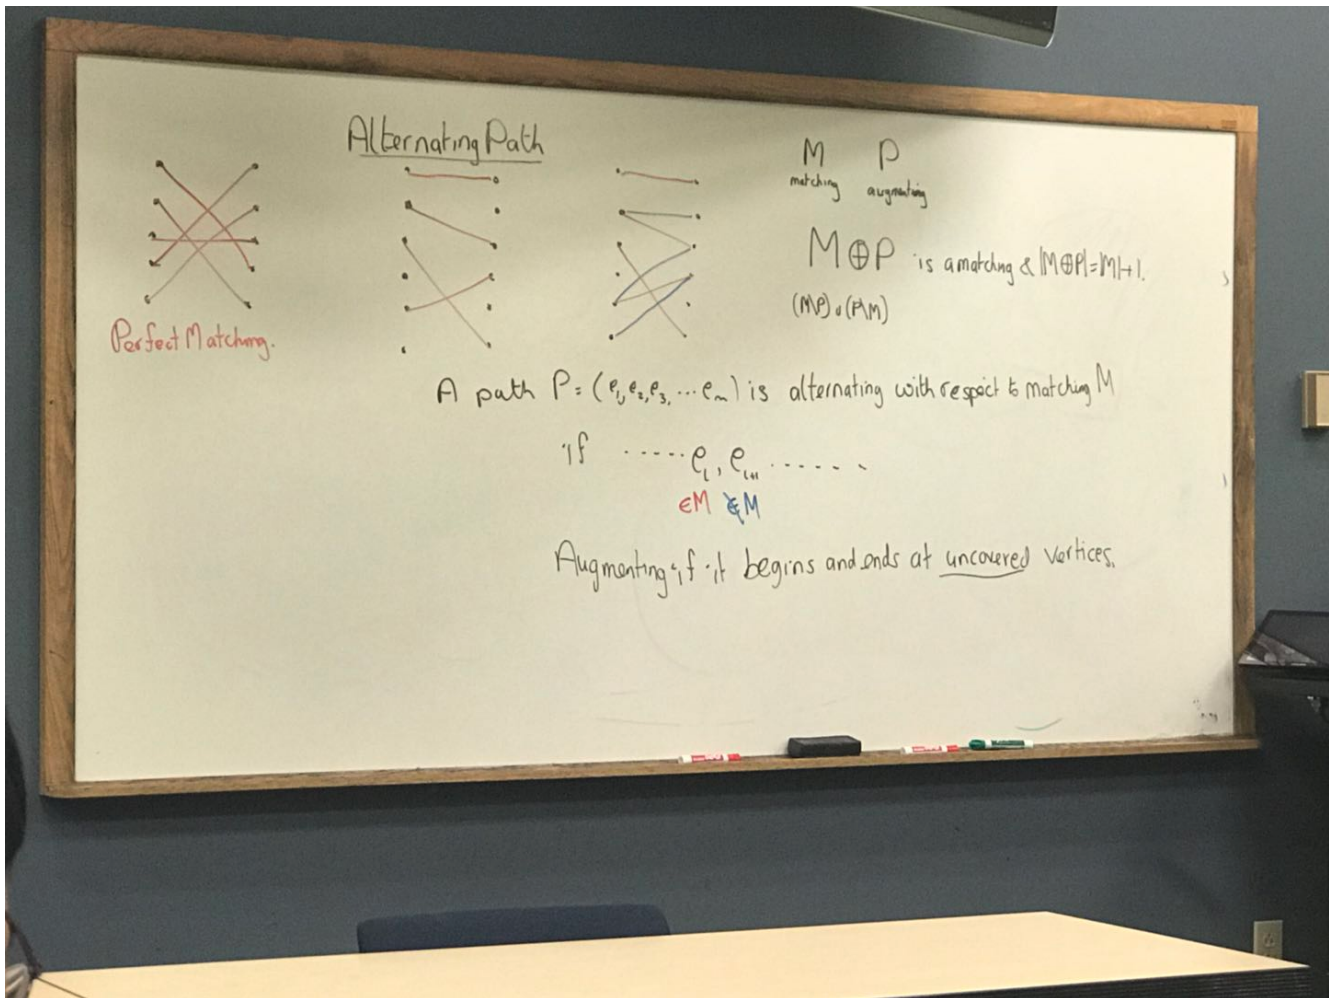 Alternating Path
Perfect Matching.
M P
matching augmenting
M⊕P is a matching & |M⊕P|=|M|+1.
(M\P)∪(P\M)
A path P = (e₁, e₂, e₃, ... eₘ) is alternating with respect to matching M
if ..... eᵢ, eᵢ₊₁ .......
∈M ∉M
Augmenting if it begins and ends at uncovered vertices.